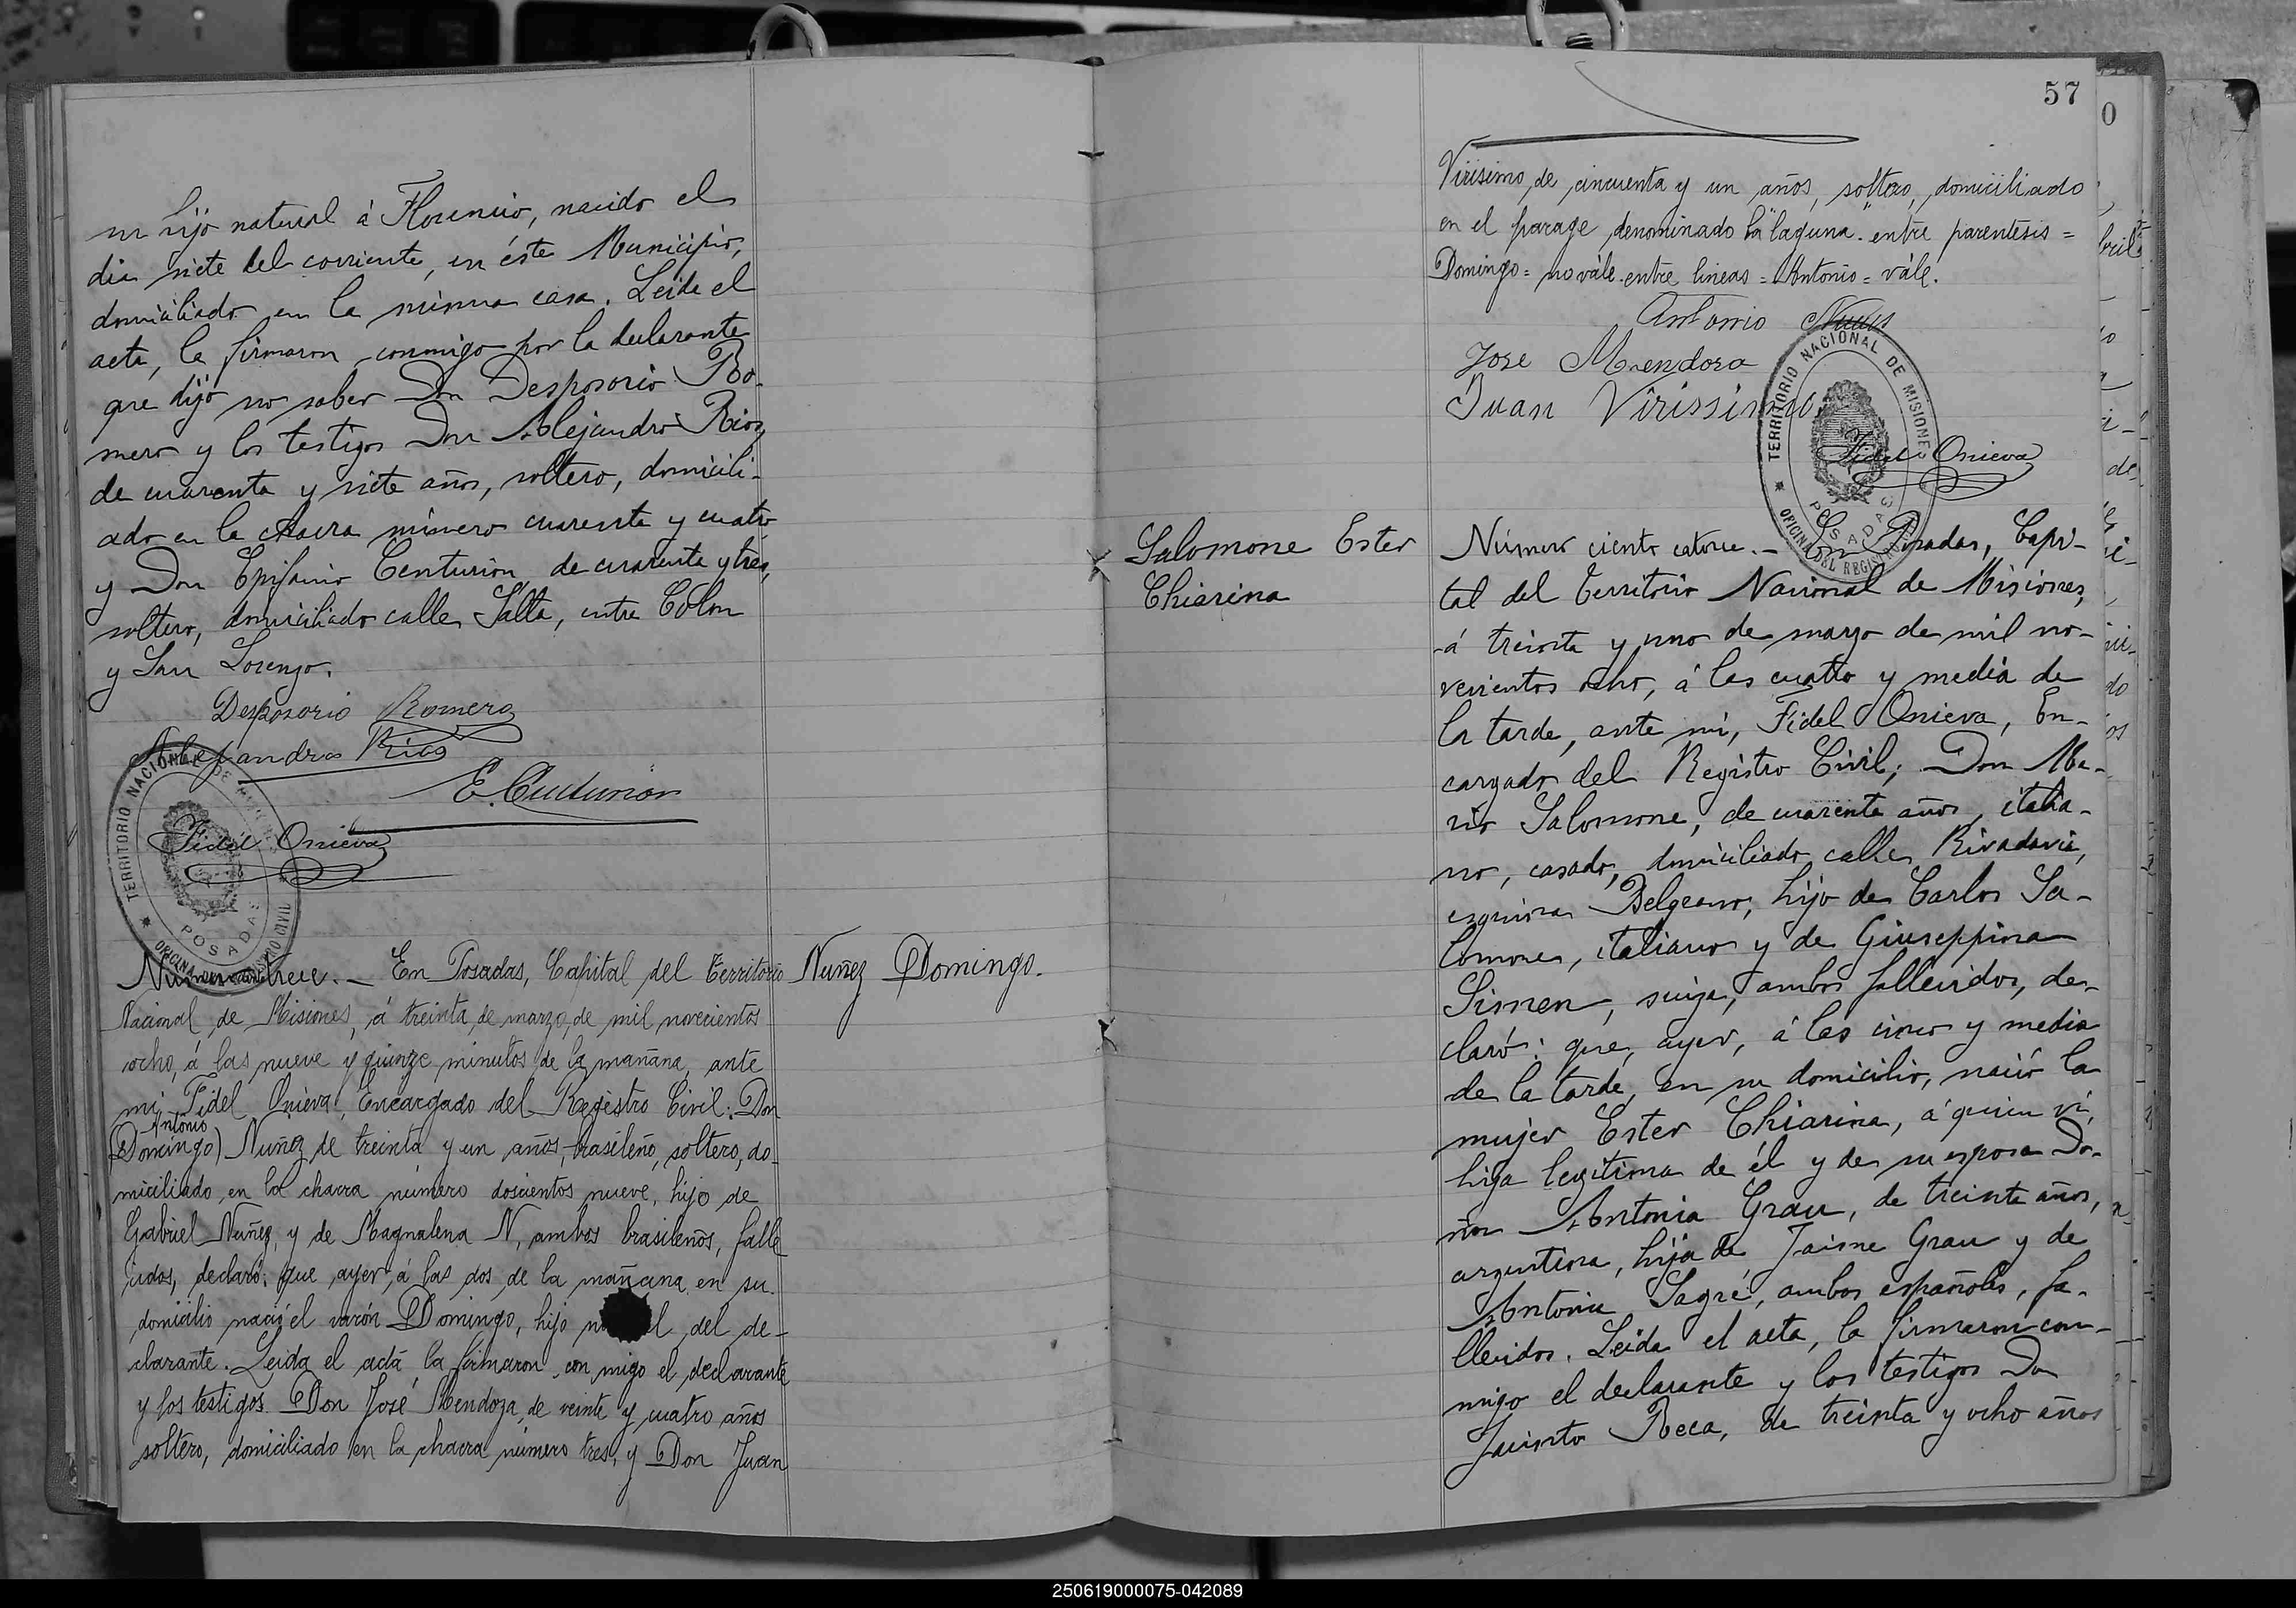 su hijo natural á Florencio, nacido el
dia siete del corriente, en éste Municipio,
domiciliado en la misma casa. Leida el
acta, la firmaron conmigo por la declarante
que dijo no saber Don Desposorio Ro-
mero y los testigos Don Alejandro Rios,
de cuarenta y siete años, soltero, domicili-
ado en la chacra número cuarenta y cuatro
y Don Epifanio Centurion, de cuarenta y tres,
soltero, domiciliado calle Salta, entre Colon
y San Lorenzo.
Desposorio Romero
Alejandro Rios
E. Centurion
Fidel Onieva
TERRITORIO NACIONAL DE MISIONES
POSADAS
OFICINA DEL REGISTRO CIVIL
Número trece. — En Posadas, Capital del Territorio
Nuñez Domingo.
Nacional, de Misiones, á treinta, de marzo, de mil novecientos
ocho, á las nueve y quinze minutos de la mañana, ante
mi Fidel Onieva, Encargado del Registro Civil: Don
Antonio
(Domingo) Nuñez de treinta y un años, brasileño, soltero, do-
miciliado en la chacra número doscientos nueve, hijo de
Gabriel Nuñez, y de Magnalena N, ambos brasileños, falle
cidos, declaró: que ayer á las dos de la mañana en su
domicilio nació el varón Domingo, hijo del de-
clarante. Leida el acta la firmaron con migo el declarante
y los testigos Don José Mendoza, de veinte y cuatro años
soltero, domiciliado en la chacra número tres, y Don Juan
57
Virisimo, de cincuenta y un años, soltero, domiciliado
en el parage denominado la "laguna". entre parentesis =
Domingo = no vále. entre lineas = Antonio = vále.
Antonio Nuñes
Jose Mendoza
Juan Virissimo
Fidel Onieva
TERRITORIO NACIONAL DE MISIONES
POSADAS
OFICINA DEL REGISTRO
Salomone Ester
Chiarina
Número ciento catorce. — En Posadas, Capi-
tal del Territorio Nacional de Misiones,
á treinta y uno de marzo de mil no-
vecientos ocho, á las cuatro y media de
la tarde, ante mi, Fidel Onieva, En-
cargado del Registro Civil; Don Ma-
rio Salomone, de cuarenta años, italia-
no, casado, domiciliado calle Rivadavia,
esquina Belgrano, hijo de Carlos Sa-
lomone, italiano y de Giuseppina
Simen, suiza, ambos fallecidos, de-
claró: que, ayer, á las cinco y media
de la tarde, en su domicilio, nació la
mujer Ester Chiarina, á quien ví,
hija legitima de él y de su esposa Do-
ña Antonia Grau, de treinta años,
argentina, hija de Jaime Grau y de
Antonia Sagré, ambos españoles, fa-
llecidos. Leida el acta, la firmaron con-
migo el declarante y los testigos Don
Jacinto Roca, de treinta y ocho años
250619000075-042089